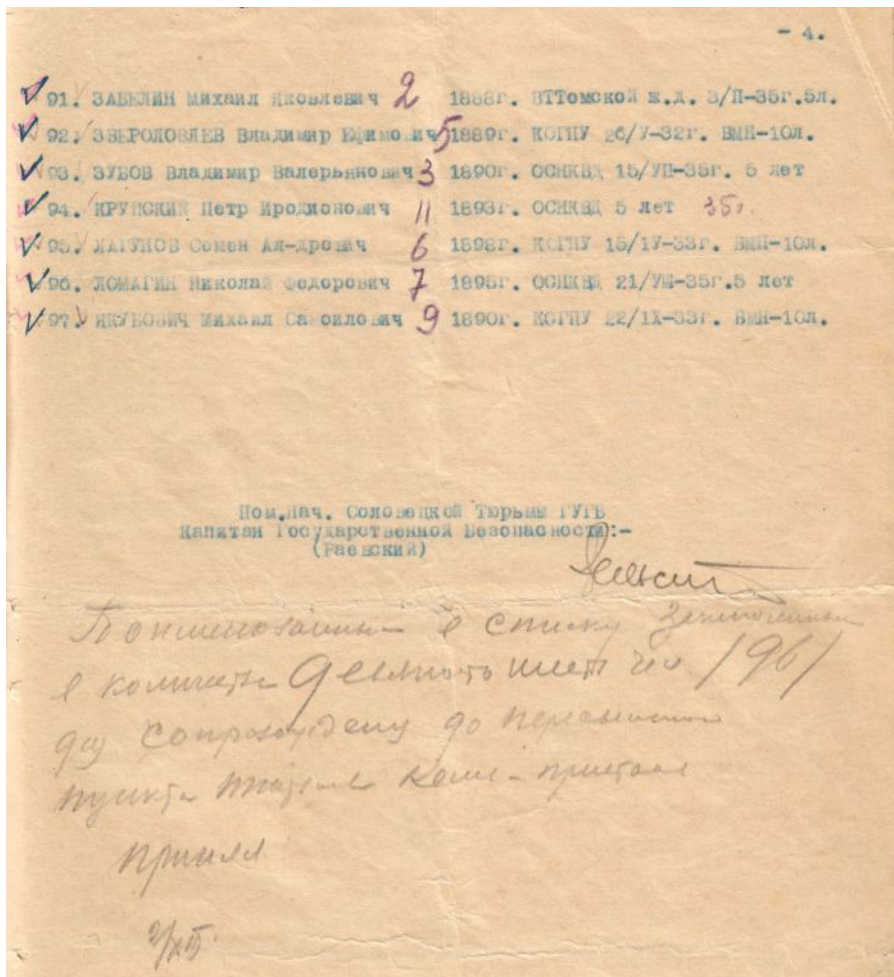 - 4.
91. ЗАБЕЛИН Михаил Яковлевич 2 1888г. ВТТомской ж.д. 3/П-35г.5л.
92. ЗВЕРОЛОВЛЕВ Владимир Ефимович 5 1889г. КОГПУ 26/У-32г. ВМН-10л.
93. ЗУБОВ Владимир Валерьянович 3 1890г. ОСНКВД 15/УП-35г. 5 лет
94. КРУПСКИЙ Петр Иродионович 11 1893г. ОСНКВД 5 лет 35г.
95. ЛАГУНОВ Семен Ал-дрович 6 1898г. КОГПУ 15/1У-33г. ВМН-10л.
96. ЛОМАГИН Николай Федорович 7 1895г. ОСНКВД 21/УШ-35г.5 лет
97. ЯКУБОВИЧ Михаил Самоилович 9 1890г. КОГПУ 22/1Х-33г. ВМН-10л.
Пом.Нач. Соловецкой Тюрьмы ГУГБ
Капитан Государственной Безопасности:-
(Раевский)
Поименованных в списку заключенных
в количестве девяносто шесть чел /96/
для сопровождения до
пункта Кемь-пристань
принял